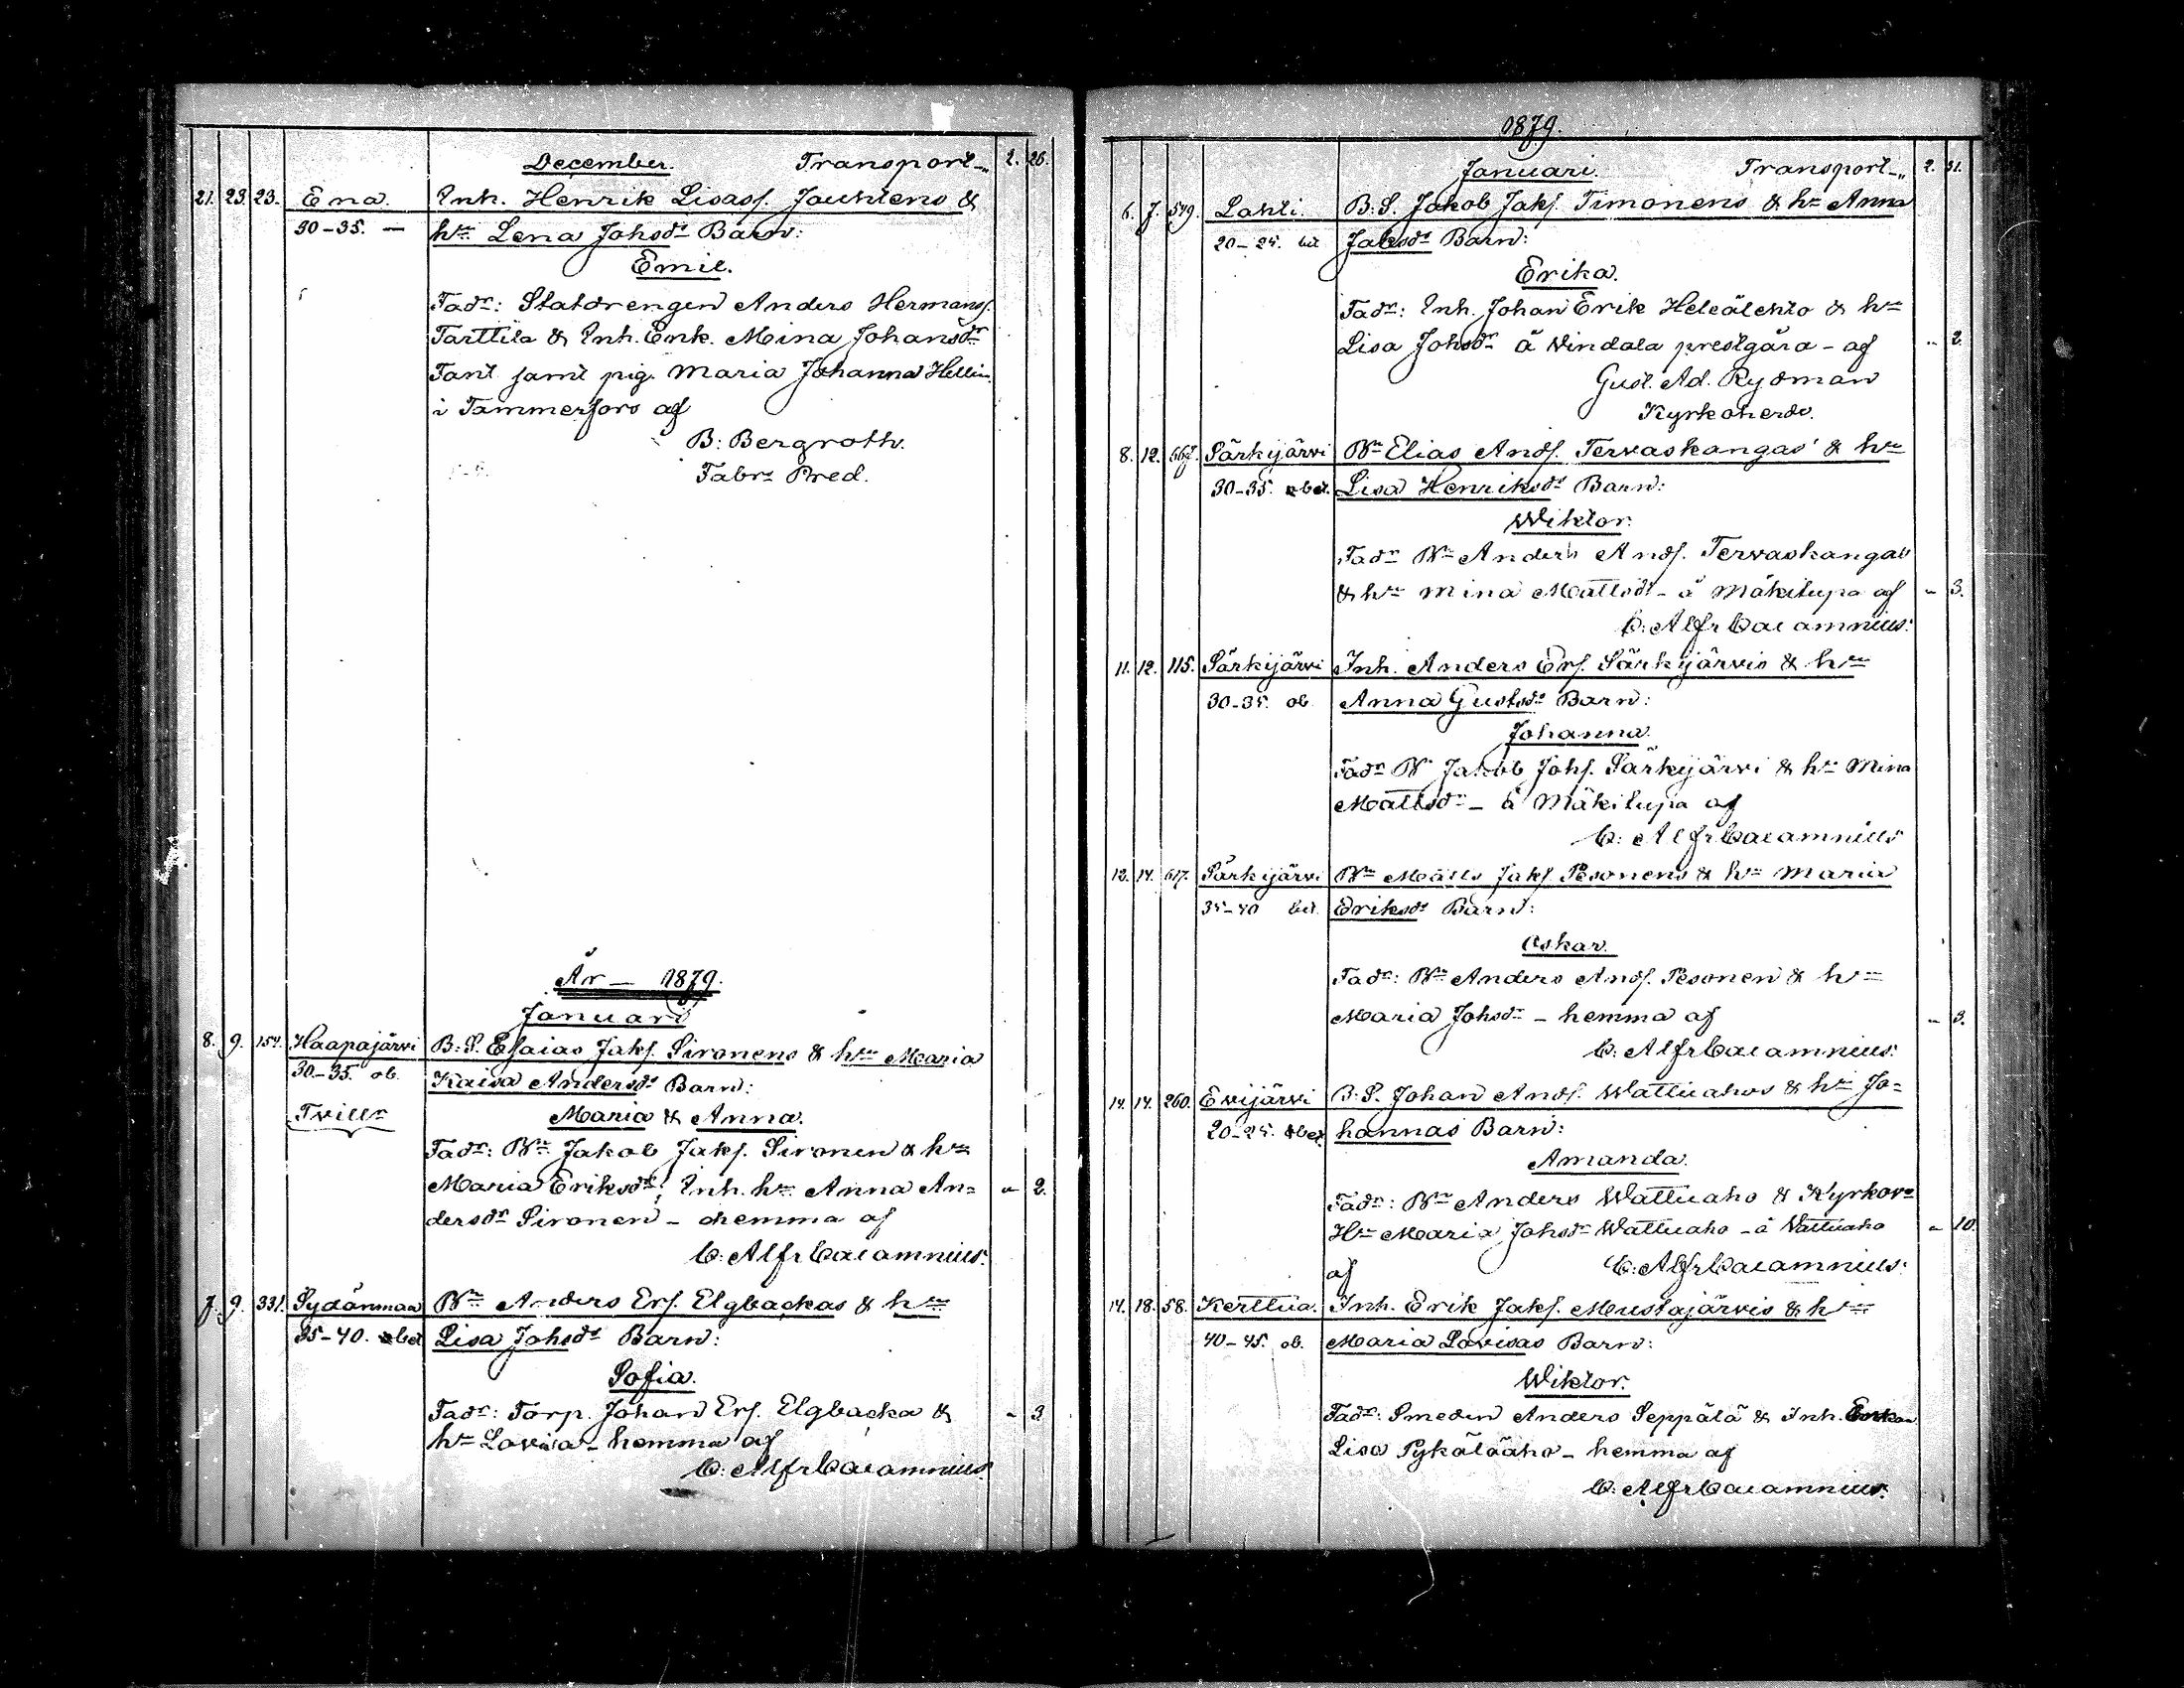 December. Transport_" 2. 26.
21. 23. 23. Ena. Inh. Henrik Lisass. Jouhtens &
30-35. — hu Lena Johsdr Barn:
Emil.
Fadr: Statdrengen Anders Hermans.
Tarttila & Inh. Enk. Mina Johansdr
Tant samt pig. Maria Johanna Hellin
i Tammerfors af
B: Bergroth.
Fabrs Pred.
År — 1879.
Januari
8. 9. 154. Haapajärvi B: S. Esaias Jaks. Sironens & hu Maria
30-35. ob. Kaisa Andersdr Barn:
Tvillr Maria & Anna.
Fadr: Bn Jakob Jaks. Sironen & hu
Maria Eriksdr; Inh. hu Anna An= " 2.
dersdr Sironen - hemma af
C: Alfr Cajamnius.
7. 9. 331. Sydänmaa Bn Anders Ers. Elgbackas & hu
35-40. obet Lisa Johsdr Barn:
Sofia.
Fadr: Torp. Johan Ers. Elgbacka & " 3
hu Lovisa - hemma af
C: Alfr Cajamnius.
1879.
Januari. Transport_" 2. 31.
6. 7. 549. Lahti. B: S. Jakob Jaks. Timonens & hu Anna
20-25. bet Jaksdr Barn:
Erika.
Fadr: Inh. Johan Erik Heleälehto & hu
Lisa Johsdr å Vindala prestgård - af " 2.
Gust. Ad. Rydman
Kyrkoherde.
8. 12. Särkijärvi Bn Elias Ands. Tervaskangas' & hu
30-35. obet. Lisa Henriksdr Barn:
Wiktor.
Fadr Bn Anders Ands. Tervaskangas
& hu Mina Mattsdr - å Mäkitupa af " 3.
C: Alfr Cajamnius.
11. 12. 115. Särkijärvi Inh. Anders Ers. Särkijärvis & hu
30-35. ob. Anna Gustsdr Barn:
Johanna.
Fadr Bn Jakob Johs. Särkijärvi & hu Mina
Mattsdr - å Mäkitupa af
C: Alfr Cajamnius
12. 14. 617. Särkijärvi Bn Matts Jaks. Pesonens & hu Maria
35-40 bet. Eriksdr Barn:
Oskar.
Fadr: Bn Anders Ands. Pesonen & hu
Maria Johsdr - hemma af " 3.
C: Alfr Cajamnius.
14. 14. 260. Evijärvi B: S. Johan Ands. Wattuahos & hu Jo=
20-25. obet hannas Barn:
Amanda.
Fadr: Bn Anders Wattuaho & Kyrkov
Hu Maria Johsdr Wattuaho - å Wattuaho " 10.
af C: Alfr Cajamnius.
14. 18. 58. Kerttua. Inh. Erik Jaks. Mustajärvis & hu
40-45. ob. Maria Lovisas Barn:
Wiktor.
Fadr: Smeden Anders Seppälä & Inh. Enkan
Lisa Pykäläaho - hemma af
C: Alfr Cajamnius.